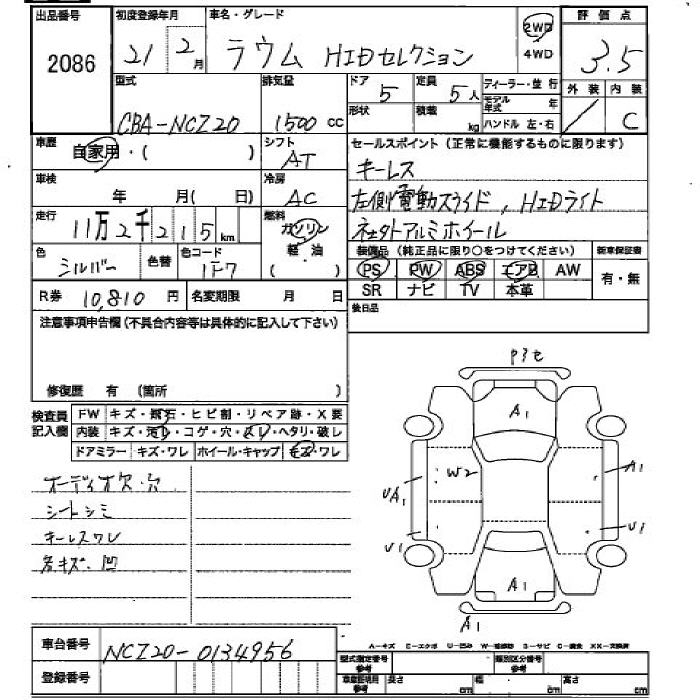 出品番号 初度登録年月 車名・グレード 評価点
2086 21 2月 ラウム HIDセレクション 2WD 4WD 3.5
型式 排気量 ドア 定員 ディーラー・並行 外装 内装
CBA-NCZ20 1500 cc 5 5人 モデル年式 年 C
形状 積載 kg ハンドル 左・右
車歴 自家用・( ) シフト AT セールスポイント(正常に機能するものに限ります)
キーレス
車検 年 月( 日) 冷房 AC 左側電動スライド, HIDライト
走行 11万2千215km 燃料 ガソリン 軽・油 ( ) 社外アルミホイール
色 シルバー 色替 色コード 1F7 装備品(純正品に限り○をつけてください) 新車保証書
PS PW ABS エアB AW 有・無
R券 10,810円 名変期限 月 日 SR ナビ TV 本革
注意事項申告欄(不具合内容等は具体的に記入して下さい) 後日品
修復歴 有 (箇所 )
検査員記入欄 FW キズ・飛石・ヒビ割・リペア跡・X要
内装 キズ・汚れ・コゲ・穴・スレ・ヘタリ・破レ
ドアミラー キズ・ワレ ホイール・キャップ キズ・ワレ
オーディオ欠・穴
シートシミ
キーレスワレ
各キズ・凹
Pヌセ
A1
W2 A1
UA1
U1 U1
A1
A1
A-キズ E-エクボ U-凹み W-補修跡 S-サビ C-腐食 XX-交換済
車台番号 NCZ20-0134956
登録番号 型式指定番号 参考 類別区分番号 参考
車庫証明用 参考 長さ cm 幅 cm 高さ cm